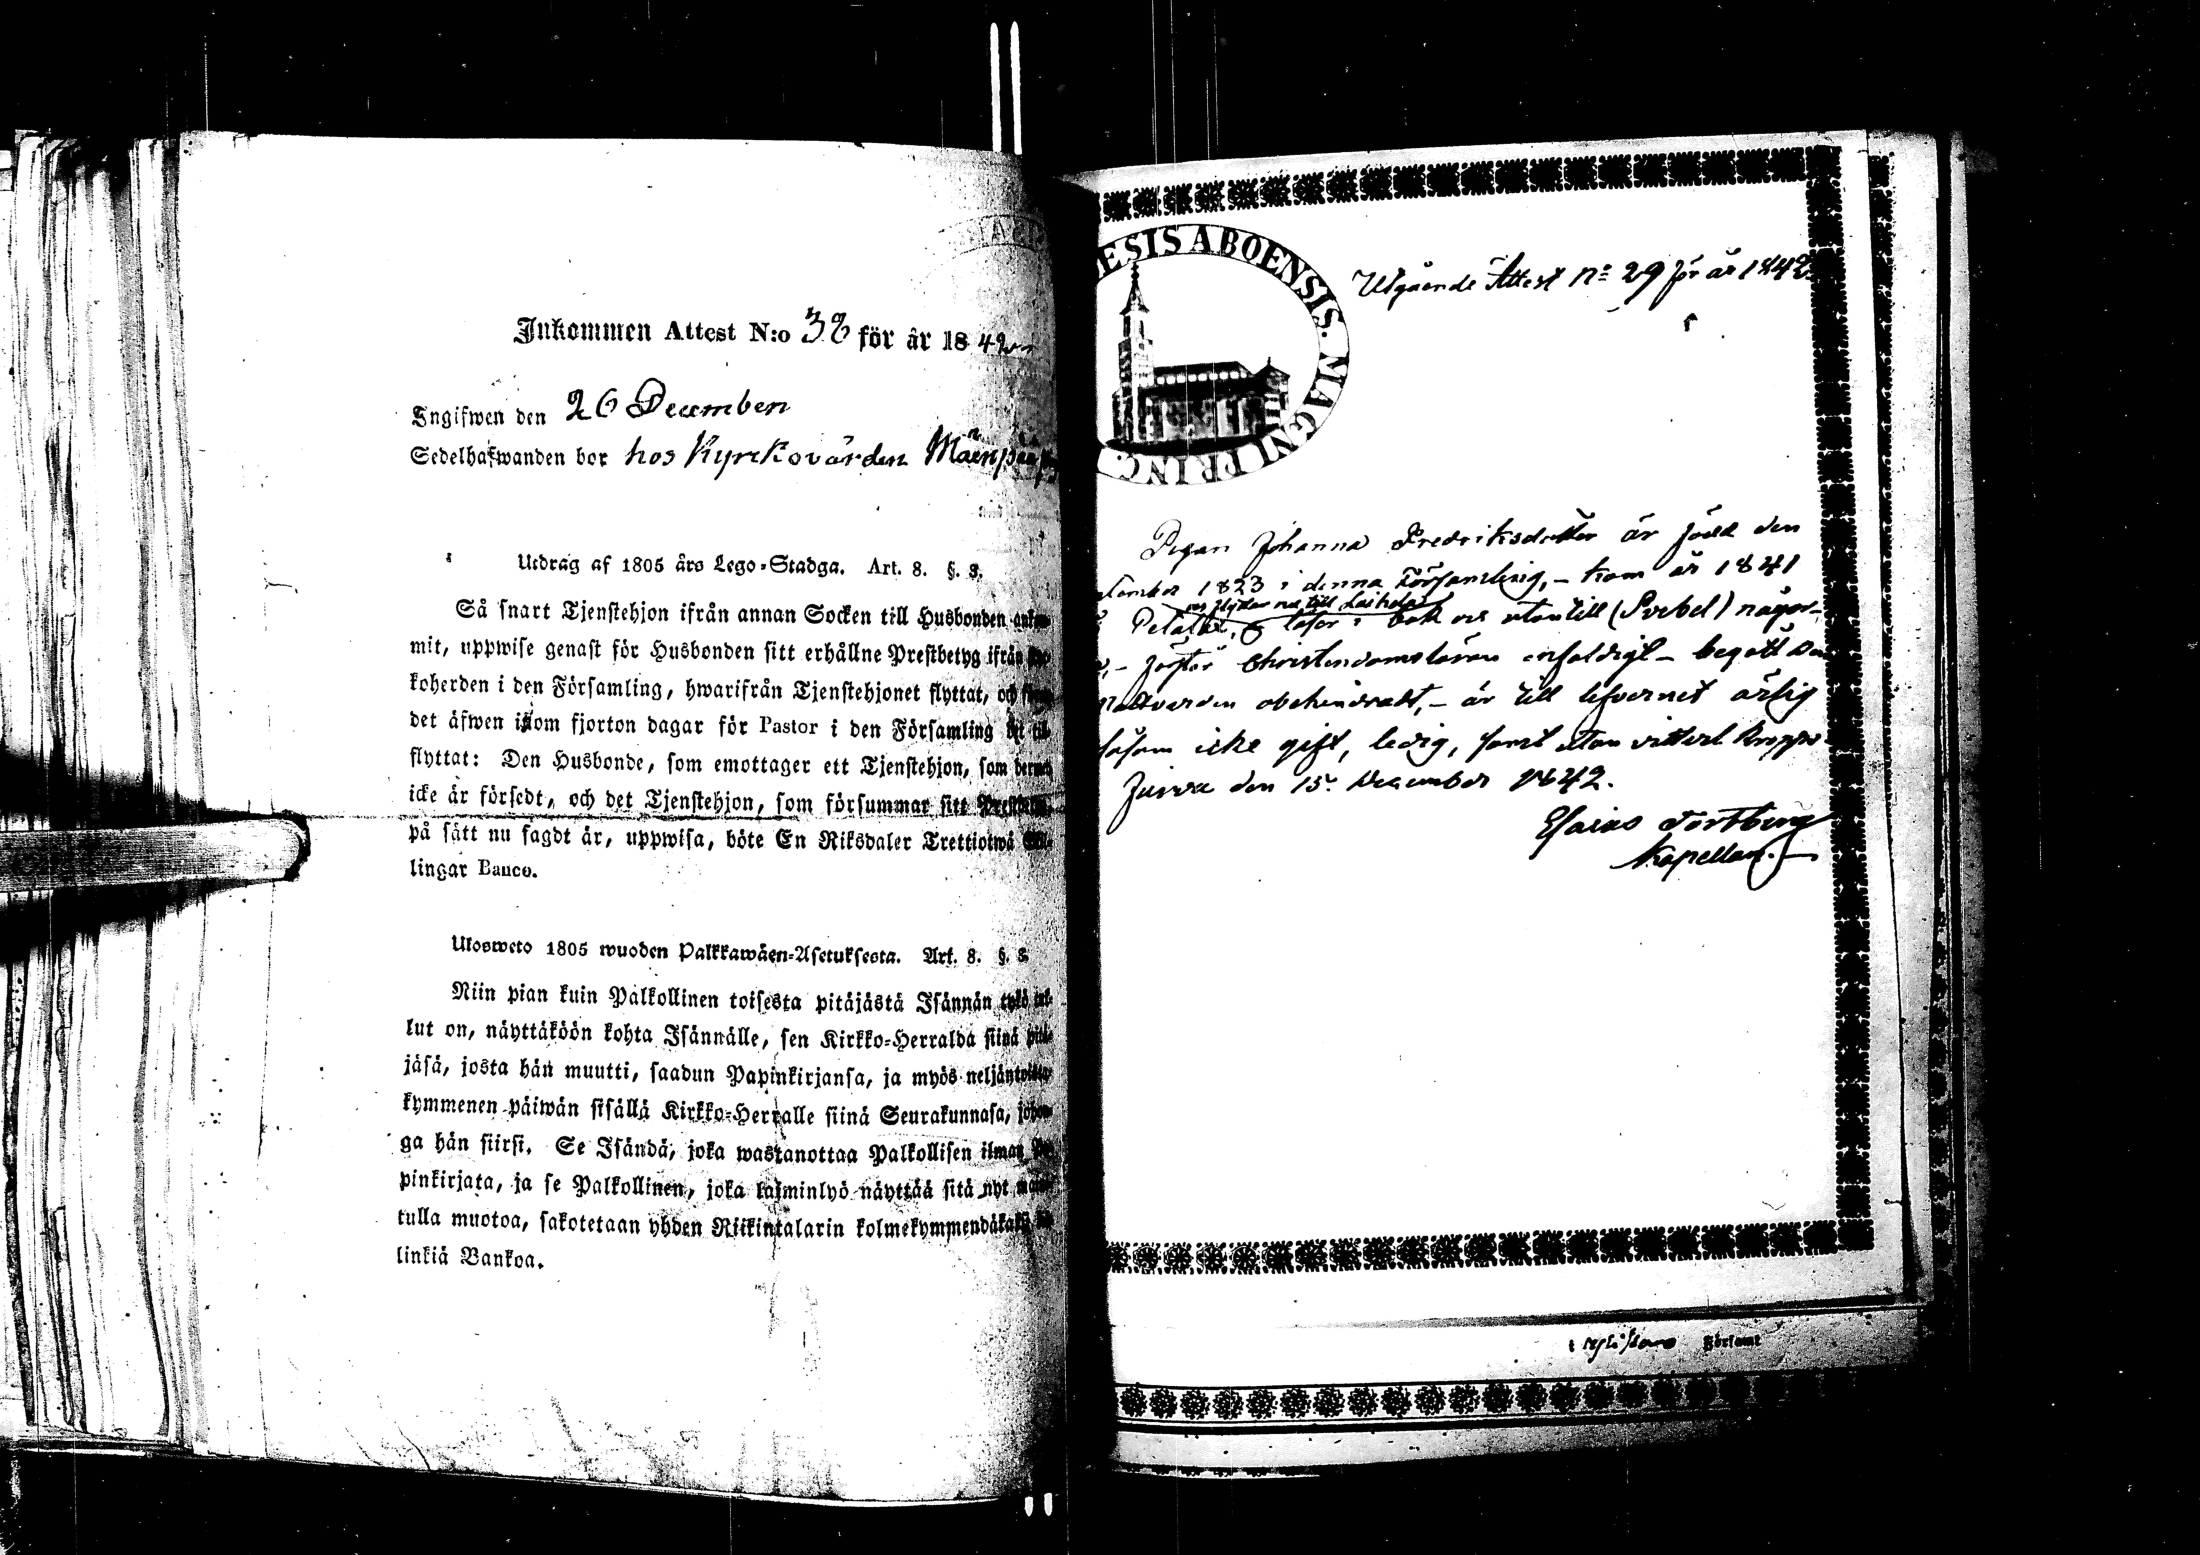 Inkommen Attest N:o 38 för år 1842
Ingifwen den 26 December
Sedelhafwanden bor hos Kyrkovärden Mäenpää
Utdrag af 1805 års Lego-Stadga. Art. 8. §. 8.
Så snart Tjenstehjon ifrån annan Socken till Husbonden
mit, uppwise genast för Husbonden sitt erhållne Prestbetyg ifrån
koherden i den Församling, hwarifrån Tjenstehjonet flyttat, och
det äfwen inom fjorton dagar för Pastor i den Församling
flyttat: Den Husbonde, som emottager ett Tjenstehjon, som dermed
icke är försedt, och det Tjenstehjon, som försummar sitt
på sätt nu sagdt är, uppwisa, böte En Riksdaler Trettiotwå
lingar Banco.
Ulosweto 1805 wuoden Palkkawäen-Asetuksesta. Art. 8. §. 8.
Niin pian kuin Palkollinen toisesta pitäjästä Isännän tykö
lut on, näyttäköön kohta Isännälle, sen Kirkko-Herralda siinä
jäsä, josta hän muutti, saadun Papinkirjansa, ja myös
kymmenen päiwän sisällä Kirkko-Herralle siinä Seurakunnasa,
ga hän siirsi. Se Isändä, joka wastanottaa Palkollisen ilman
pinkirjata, ja se Palkollinen, joka laiminlyö näyttää sitä nyt
tulla muotoa, sakotetaan yhden Riikintalarin
linkiä Bankoa.
ESIS ABOENSIS. MAGNI PRINC.
Utgående Attest No 29 för år 1842
Pigan Johanna Fredriksdotter är född den
1823 i denna Församling, - kom år 1841
flyttar nu till Laihela
Petalax, läser i bok och utantill (Svebel) någor-
- förstår Christendomsläran enfaldigt - begått
obehindradt, - är till lefvernet ärlig
icke gift, ledig, samt utan
Jurva den 15 December 1842.
Esaias
Kapellan.
i Församl